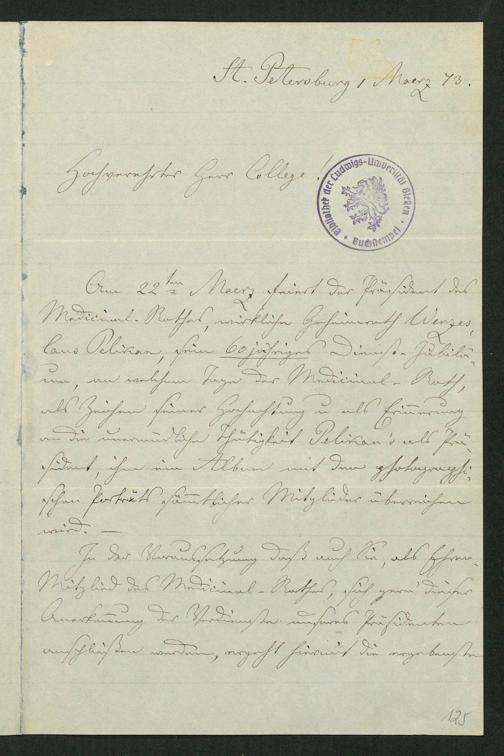 St. Petersburg 1 Maerz 73.
Hochverehrter Herr College!
Bibliothek der Ludwigs-Universität Giessen
Buchstempel
Am 22ten Maerz feiert der Präsident des
Medicinal-Rathes, wirkliche Geheimrath Wenzes,
laus Pelikan, sein 60jähriges Dienst-Jubilä-
um, an welchem Tage der Medicinal-Rath,
als Zeichen seiner Hochachtung u als Erinnerung
an die unermüdliche Thätigkeit Pelikan's als Prä-
sident, ihm ein Album mit den photographi-
schen Porträts sämmtlicher Mitglieder überreichen
wird. —
In der Voraussetzung daß auch Sie, als Ehren-
Mitglied des Medicinal-Rathes, sich gern dieser
Anerkennung der Verdienste unseres Präsidenten
anschließen werden, ergeht hiermit die ergebenste
125